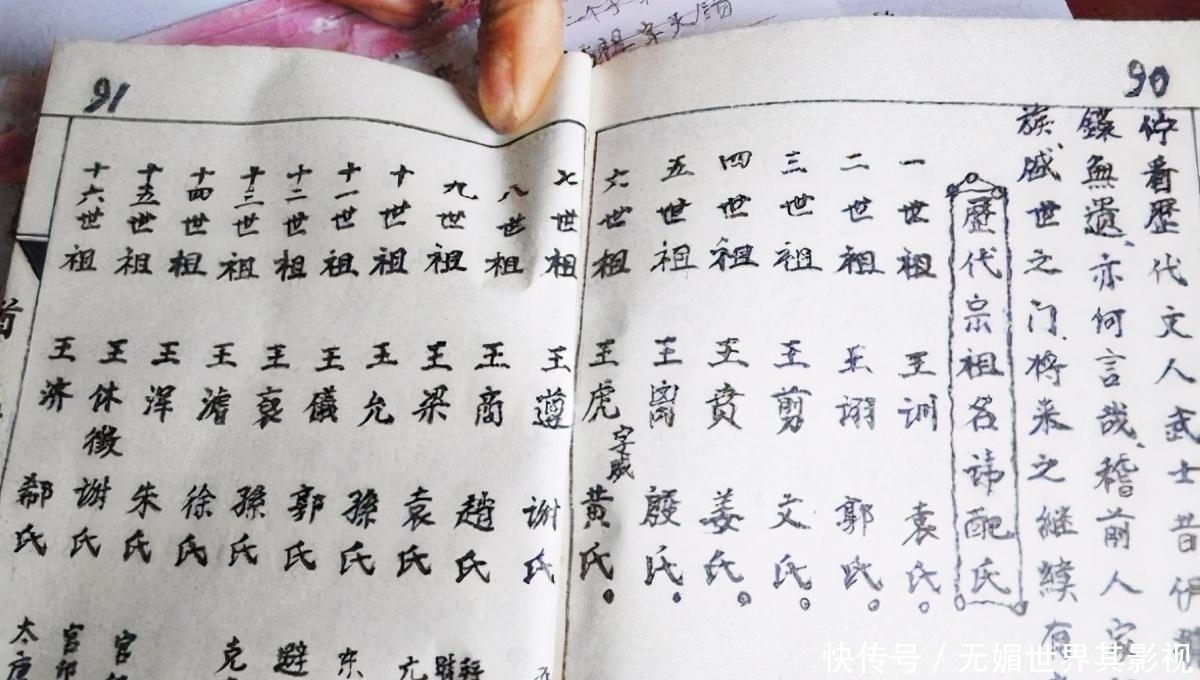 90
佇看歷代文人武士昔伊
錄無遺、亦何言哉、稽前人
族戚世之门、将来之继續有
歷代宗祖名諱配氏
一世祖 王训 袁氏。
二世祖 王翊 郭氏。
三世祖 王剪 文氏。
四世祖 王賁 姜氏。
五世祖 王离 殷氏。
六世祖 王虎 字威 黄氏。
91
七世祖 王遵 谢氏
八世祖 王商 趙氏
九世祖 王梁 袁氏
十世祖 王允 孫氏
十一世祖 王儀 郭氏
十二世祖 王裒 孫氏
十三世祖 王濬 徐氏
十四世祖 王浑 朱氏
十五世祖 王休徵 谢氏
十六世祖 王济 郗氏
快传号/无媚世界其影视